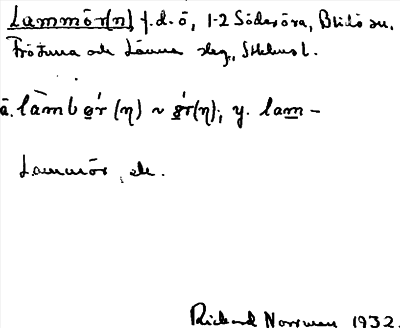 Lammör(n), f.d. ö, 1-2 Söderöra, Blidö sn,
Frötuna och Länna slg, Sthlms l.
ā. låmbər (ŋ) ~ ər(ŋ); y. lam-
Lammör, ö.
Rickard Norrman 1932.